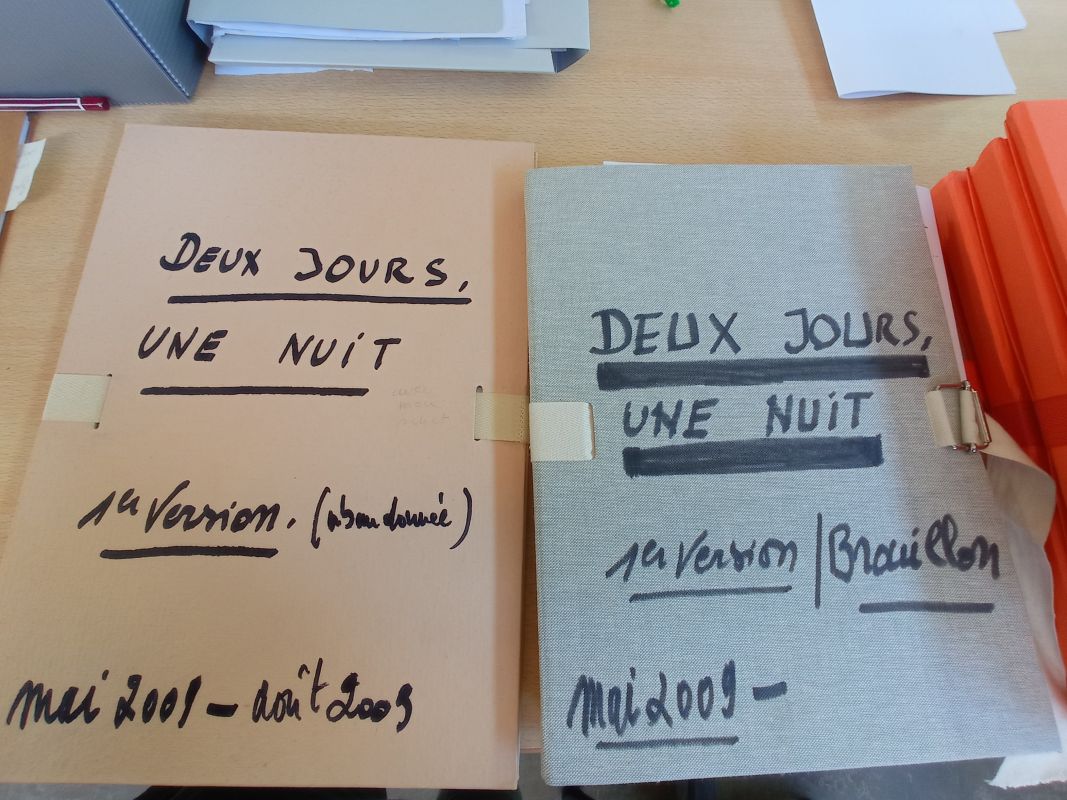 DEUX JOURS,
UNE NUIT
1er Version. (abandonnée)
mai 2009 - août 2009
DEUX JOURS,
UNE NUIT
1er Version | Brouillon
mai 2009 -